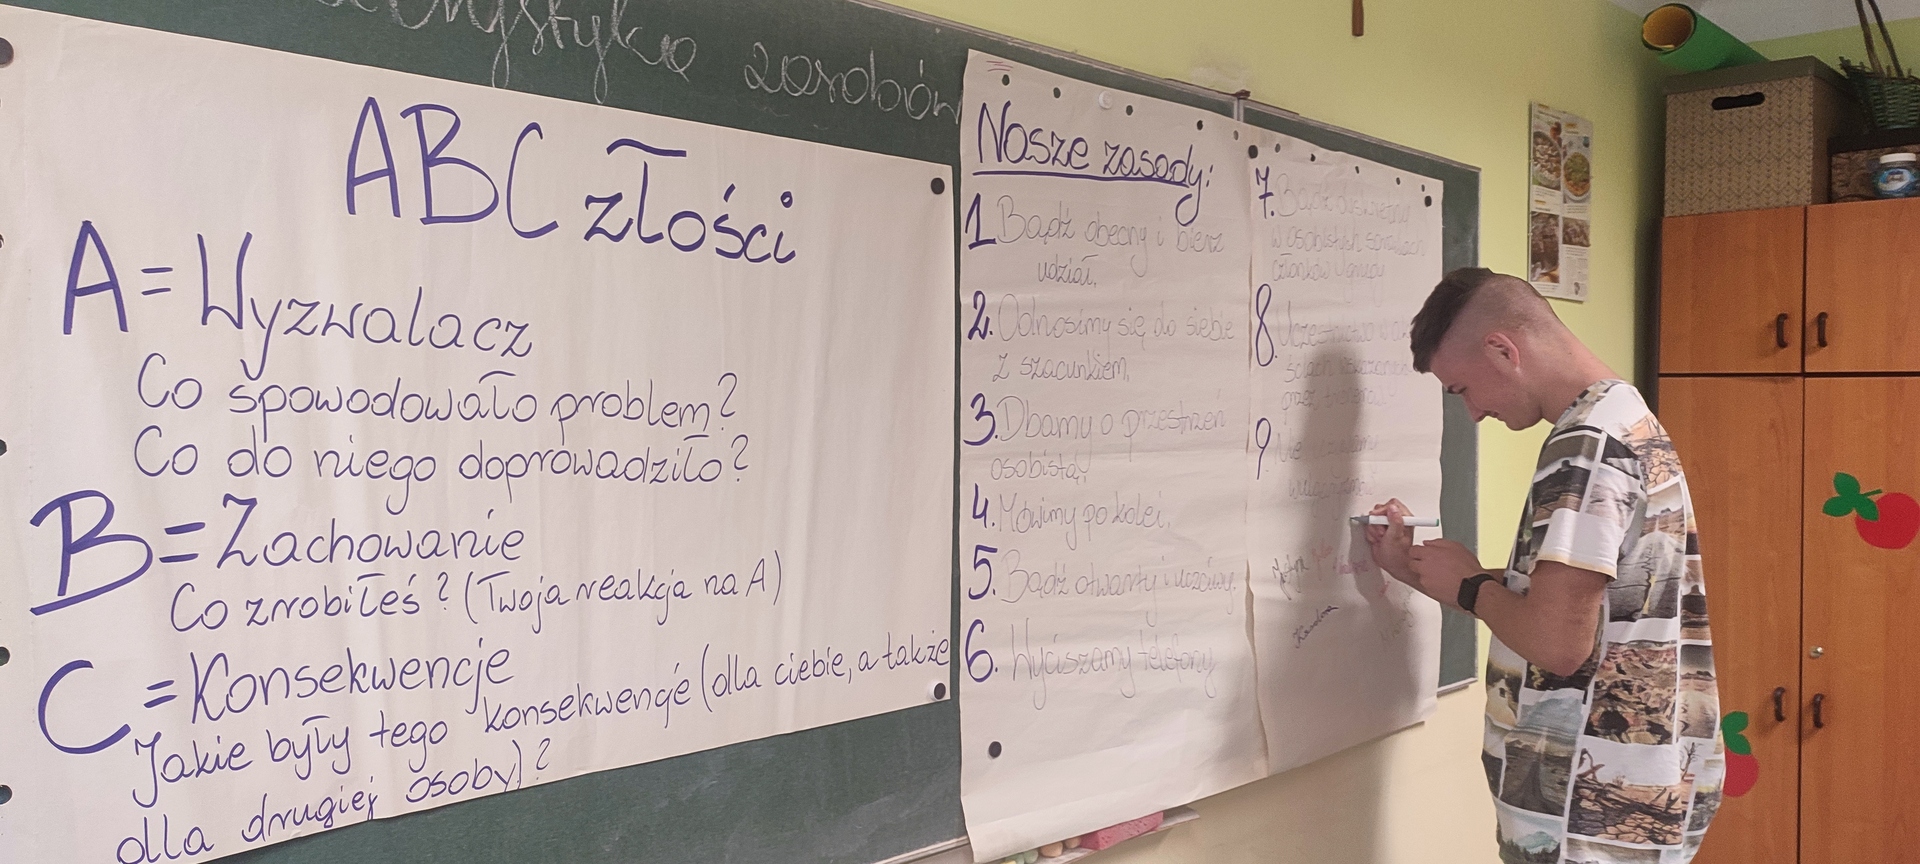 zasobów
ABC złości
A = Wyzwalacz
Co spowodowało problem?
Co do niego doprowadziło?
B = Zachowanie
Co zrobiłeś? (Twoja reakcja na A)
C = Konsekwencje
Jakie były tego konsekwencje (dla ciebie, a także
dla drugiej osoby)?
Nasze zasady:
1 Bądź obecny i bierz
udział.
2. Odnosimy się do siebie
z szacunkiem.
3. Dbamy o przestrzeń
osobistą.
4. Mówimy po kolei.
5. Bądź otwarty i uczciwy.
6. Wyciszamy telefony
7. Bądź
w osobistych sprawach
członków grupy
8.
przez
9. Nie używamy
Karolina